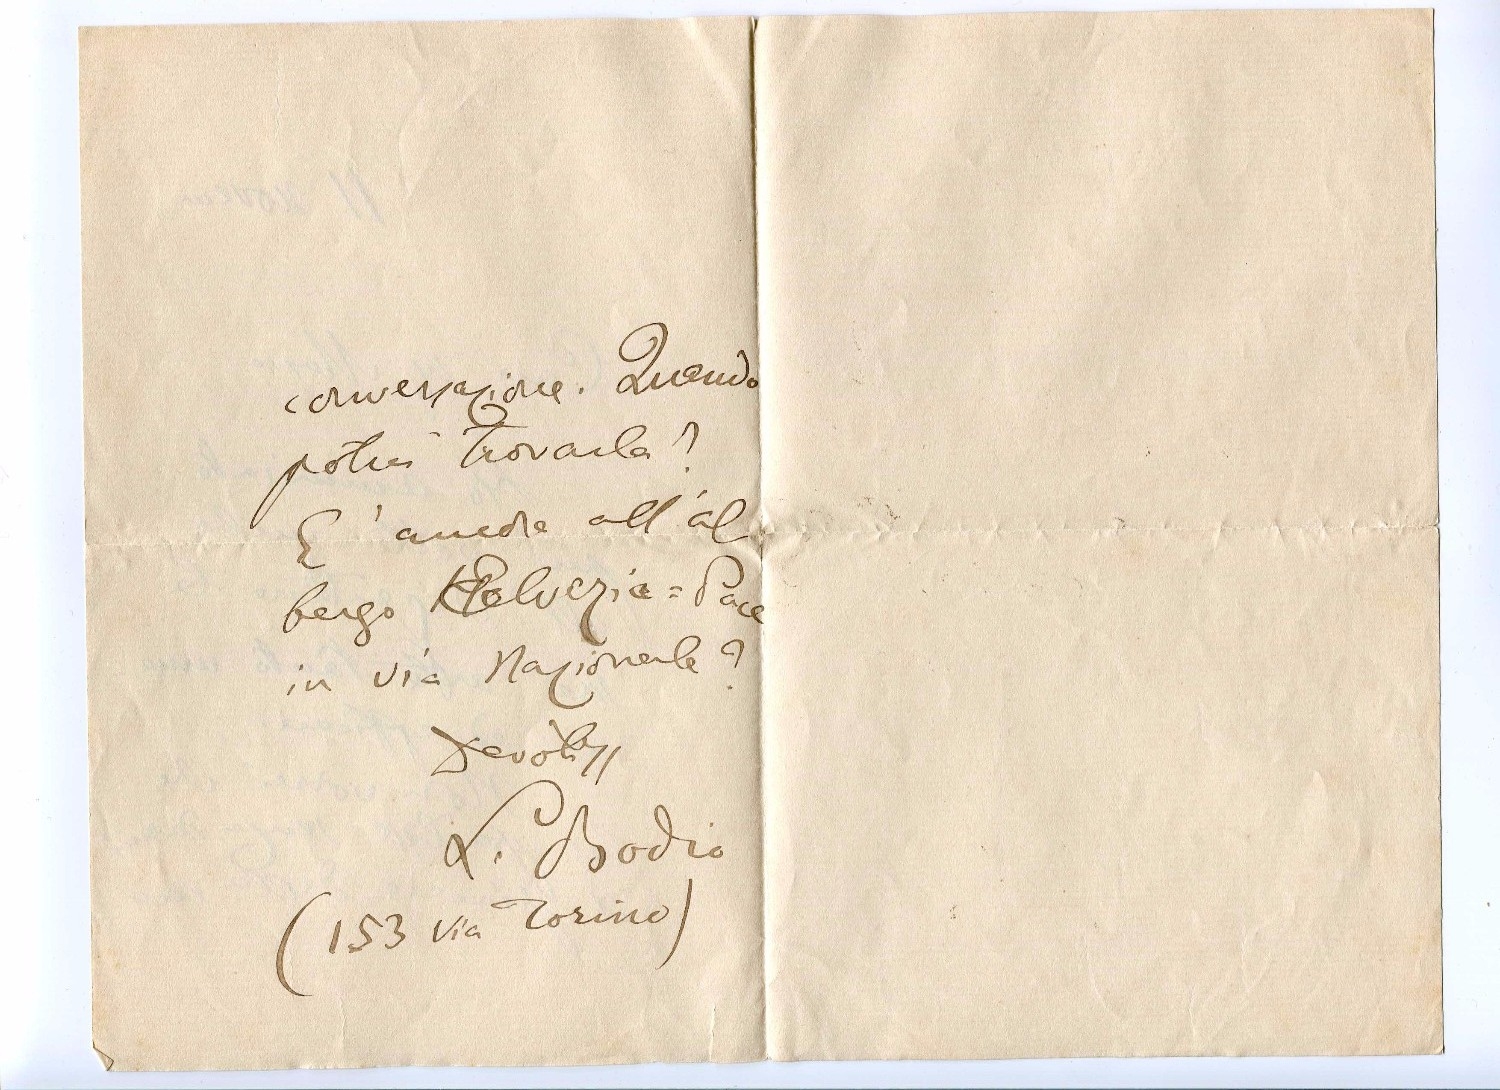 conversazione. Quando
potrei trovarla?
E' ancora all'al
bergo Helvezia = Pace
in via Nazionale?
Devotiss
L. Bodio
(153 via Torino)